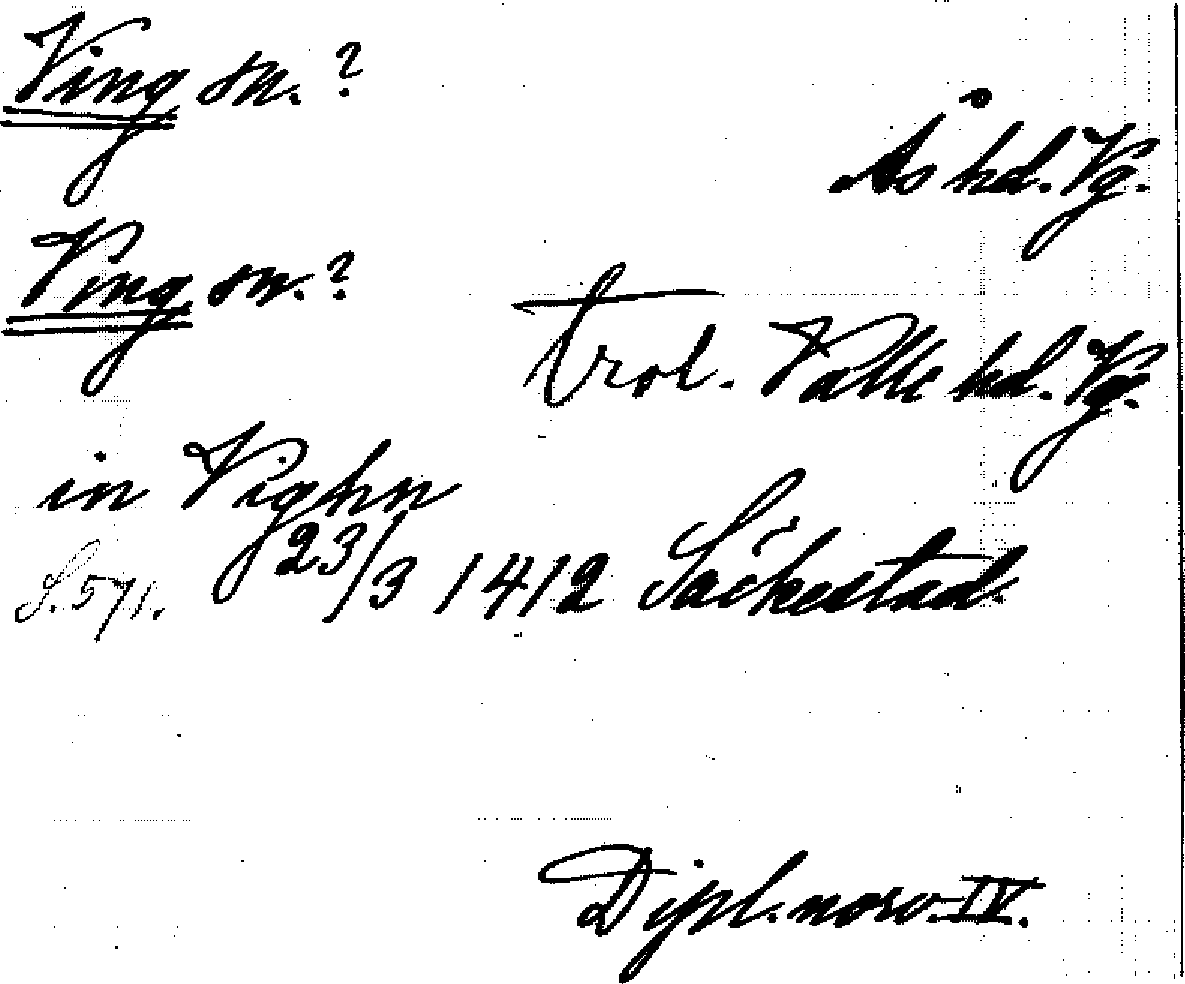 Ving sn.?
Ås hd. Vg.
Ving sn.?
trol. Valle hd. Vg.
in Vighn
S. 571. 23/3 1412 Säckestad.
Dipl. norv. IV.